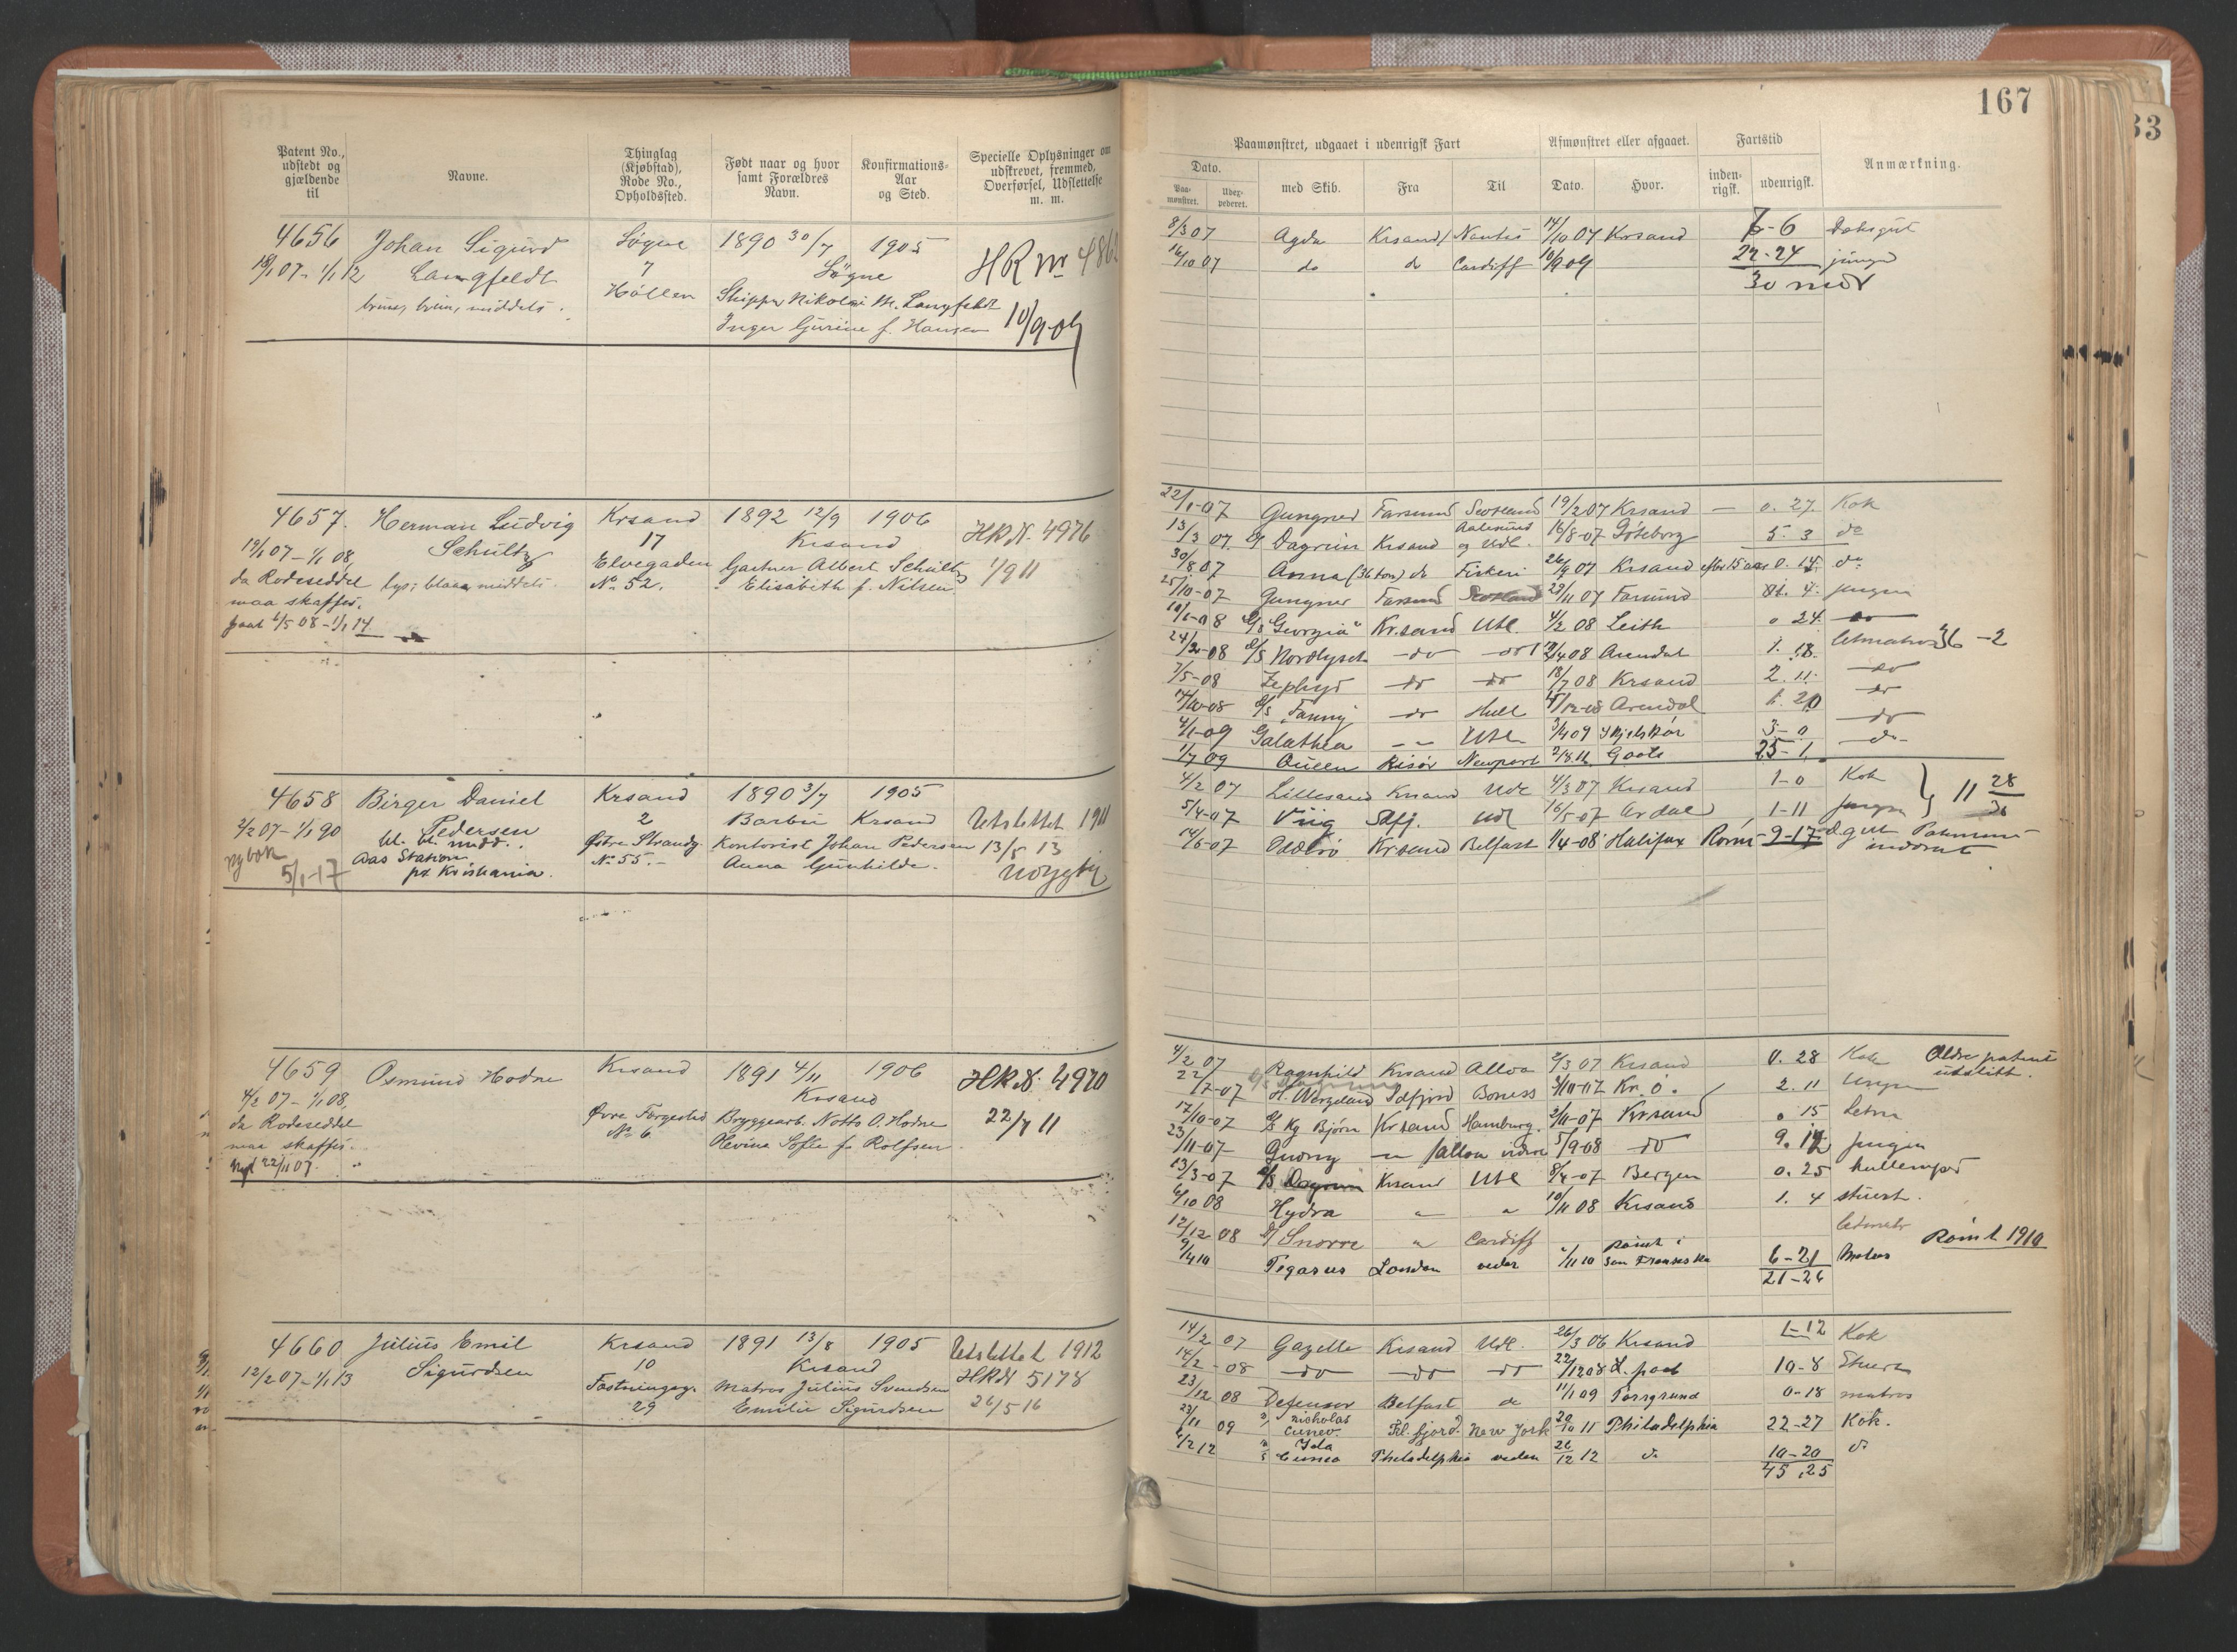 167
33
Patent No., udstedt og gjældende til
Navne.
Thinglag (Kjøbstad), Rode No., Opholdssted.
Født naar og hvor samt Forældres Navn.
Konfirmations-Aar og Sted.
Specielle Oplysninger om udskrevet, fremmed, Overførsel, Udslettelse m. m.
Paamønstret, udgaaet i udenrigsk Fart
Afmønstret eller afgaaet.
Fartstid
Anmærkning.
Dato.
Paa-mønstret.
Udex-pederet.
med Skib.
Fra
Til
Dato.
Hvor.
inden-rigsk.
udenrigsk.
4656 Johan Sigurd Søgne 1890 30/7 1905
18/1 07 - 1/1 12 Langfeldt 7 Søgne HR Nr
Høllen Skipper Nikolai M. Langfeldt
Inger Gurine f. Hansen 10/9-09
8/3 07 Agda Krsand Nantes 14/10 07 Krsand 7-6 Dæksgut
16/10 07 do do Cardiff 10/9 09 22-24 jungm
30 mdr
4657. Herman Ludvig Krsand 1892 12/9 1906 HR N. 4976
19/1 07 - 1/1 08, Schultz 17 Krsand
da Rodeseddel lys; blaa, middels. Elvegaden Gartner Albert Schultz 1/9 11
maa skaffes. No 52. Elisabeth f. Nilsen
6/5 08 - 1/1 14
22/1-07 Gungner Farsund Scotland 19/2 07 Krsand — 0. 27. Kok
13/3 07. Dagrun Krsand Aalesund og Udl. 16/8-07 Göteborg 5. 3 do
30/8 07 Anna (36 ton) do Fiskeri 26/9 07 Krsand do
25/10-07 Gungner Farsund Scotland 29/11 07 Farsund 4. jungm
"Georgia" Kr.sand Utl. 4/2 08 Leith 0 24. do
Nordlyset do do Arendal 1. 18. Letmatros 36 - 2
7/5-08 Zephyr do do 18/7 08 Krsand 2. 11. do
Fanny do Hull Arendal 1. 20 do
4/1-09 Galathea — Utl. 3/4 09 Skjelskør 3-0 do
1/7 09 Queen Risør Newport Goole 25-1 do
4658 Birger Daniel Krsand 1890 3/7 1905
2/2 07 - 1/1 90 Pedersen 2 Barbu Krsand Utslettet 1911
bl. bl. midd. Østre Strandg. Kontorist Johan Pedersen 13/5 13
ny bok Aas Station No 55. Anna Gunhilde.
5/1-17 pr. Kristiania.
4/2 07 Lillesand Krsand Udl 4/3 07 Krsand 1-0 Kok 11 28
5/4-07 Viig Udl 16/5-07 Arendal 1-11 Jungm
14/6-07 Oddersø Kr.sand Belfast 1/4-08 Halifax Romt 9-17
4659 Osmund Hodne Krsand 1891 4/11 1906 HR N. 4970
4/2 07 - 1/1 08, Krsand
da Rodeseddel Øvre Torgested Bryggearb. Notto O. Hodne 22/7 11
maa skaffes. No 6 Olevine Sofie f. Rolfsen
22/11 07.
4/2 07 Ragnhild Krsand Alloa 2/3 07 Krsand 0. 28 Kok Ældre patent utslitt.
22/7-07 H. Wergeland Idfjord Boness 3/10-07 Kr. O. 2. 11 Ungm
17/10-07 Kg Bjørn Krsand Hamburg. 2/11-07 Krsand 0 15 Letm
23/11-07 Gudny — Alloa videre 5/9-08 do 9. 12 Jungm
13/3-07 Dagrun Krsand Utl 8/4-07 Bergen 0. 25 kullemper
6/10 08 Hydra " " 10/11 08 Krsand 1. 4 stuert.
12/12 08 Snorre " Cardiff letmatr
9/4 10 Pegasus London veder 1/11 10 Rømt i San Fransisko 6-21 Matros Rømt 1910
21-26
4660 Julius Emil Krsand 1891 13/8 1905 Utslettet 1912
12/2 07 - 1/1 13 Sigurdsen 10 Krsand HR N 5178
Fæstningsg. Matros Julius Svendsen 26/5 16
29 Emilie Sigurdsen
14/2 07 Gazelle Krsand Udl. 26/3 06 Krsand 1-12 Kok
14/2-08 do do do 22/12 08 L.pool 10-8 Stuert
23/12 08 Defensor Belfast do 11/1 09 Porsgrund 0-18 matros
23/11 09 Nicholas Cuneo Kl.fjord. New York 20/10 11 Philadelphia 22-27 Kok.
6/2 12 Ida Cuneo Philadelphia veden 26/12 12 do 10-20 do
45,25